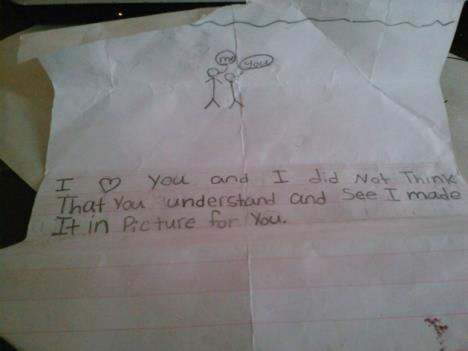 me
You
I ♡ You and I did Not Think
That You understand and See I made
It in Picture for You.